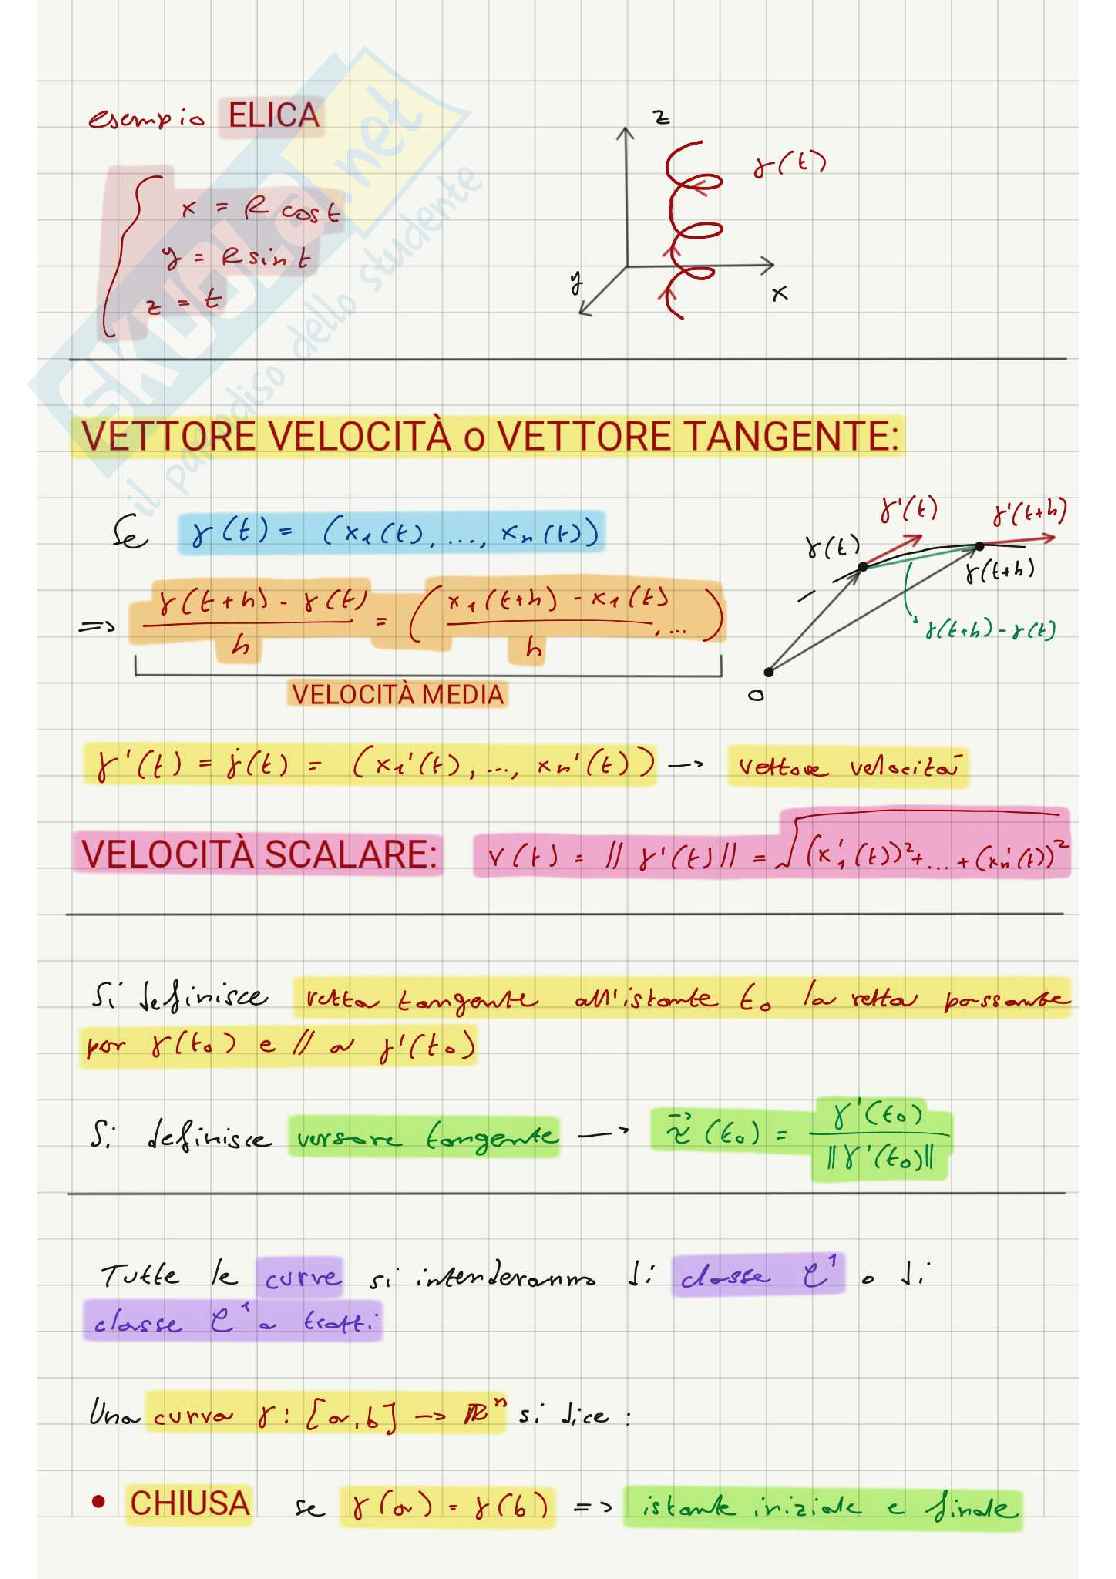 esempio ELICA
x = R cos t
y = R sin t
z = t
z
γ(t)
y
x
SKUOLA.net
il paradiso dello studente
VETTORE VELOCITÀ o VETTORE TANGENTE:
Se γ(t) = (x₁(t), ..., xₙ(t))
=> γ(t+h) - γ(t) / h = ( x₁(t+h) - x₁(t) / h , ... )
VELOCITÀ MEDIA
γ'(t)
γ'(t+h)
γ(t)
γ(t+h)
γ(t+h) - γ(t)
O
γ'(t) = γ̇(t) = (x₁'(t), ..., xₙ'(t)) → vettore velocità
VELOCITÀ SCALARE: v(t) = || γ'(t) || = √(x₁'(t))² + ... + (xₙ'(t))²
Si definisce retta tangente all'istante t₀ la retta passante
per γ(t₀) e // a γ'(t₀)
Si definisce versore tangente → τ⃗(t₀) = γ'(t₀) / ||γ'(t₀)||
Tutte le curve si intenderanno di classe C¹ o di
classe C¹ a tratti
Una curva γ: [a,b] → ℝⁿ si dice :
• CHIUSA se γ(a) = γ(b) => istante iniziale e finale